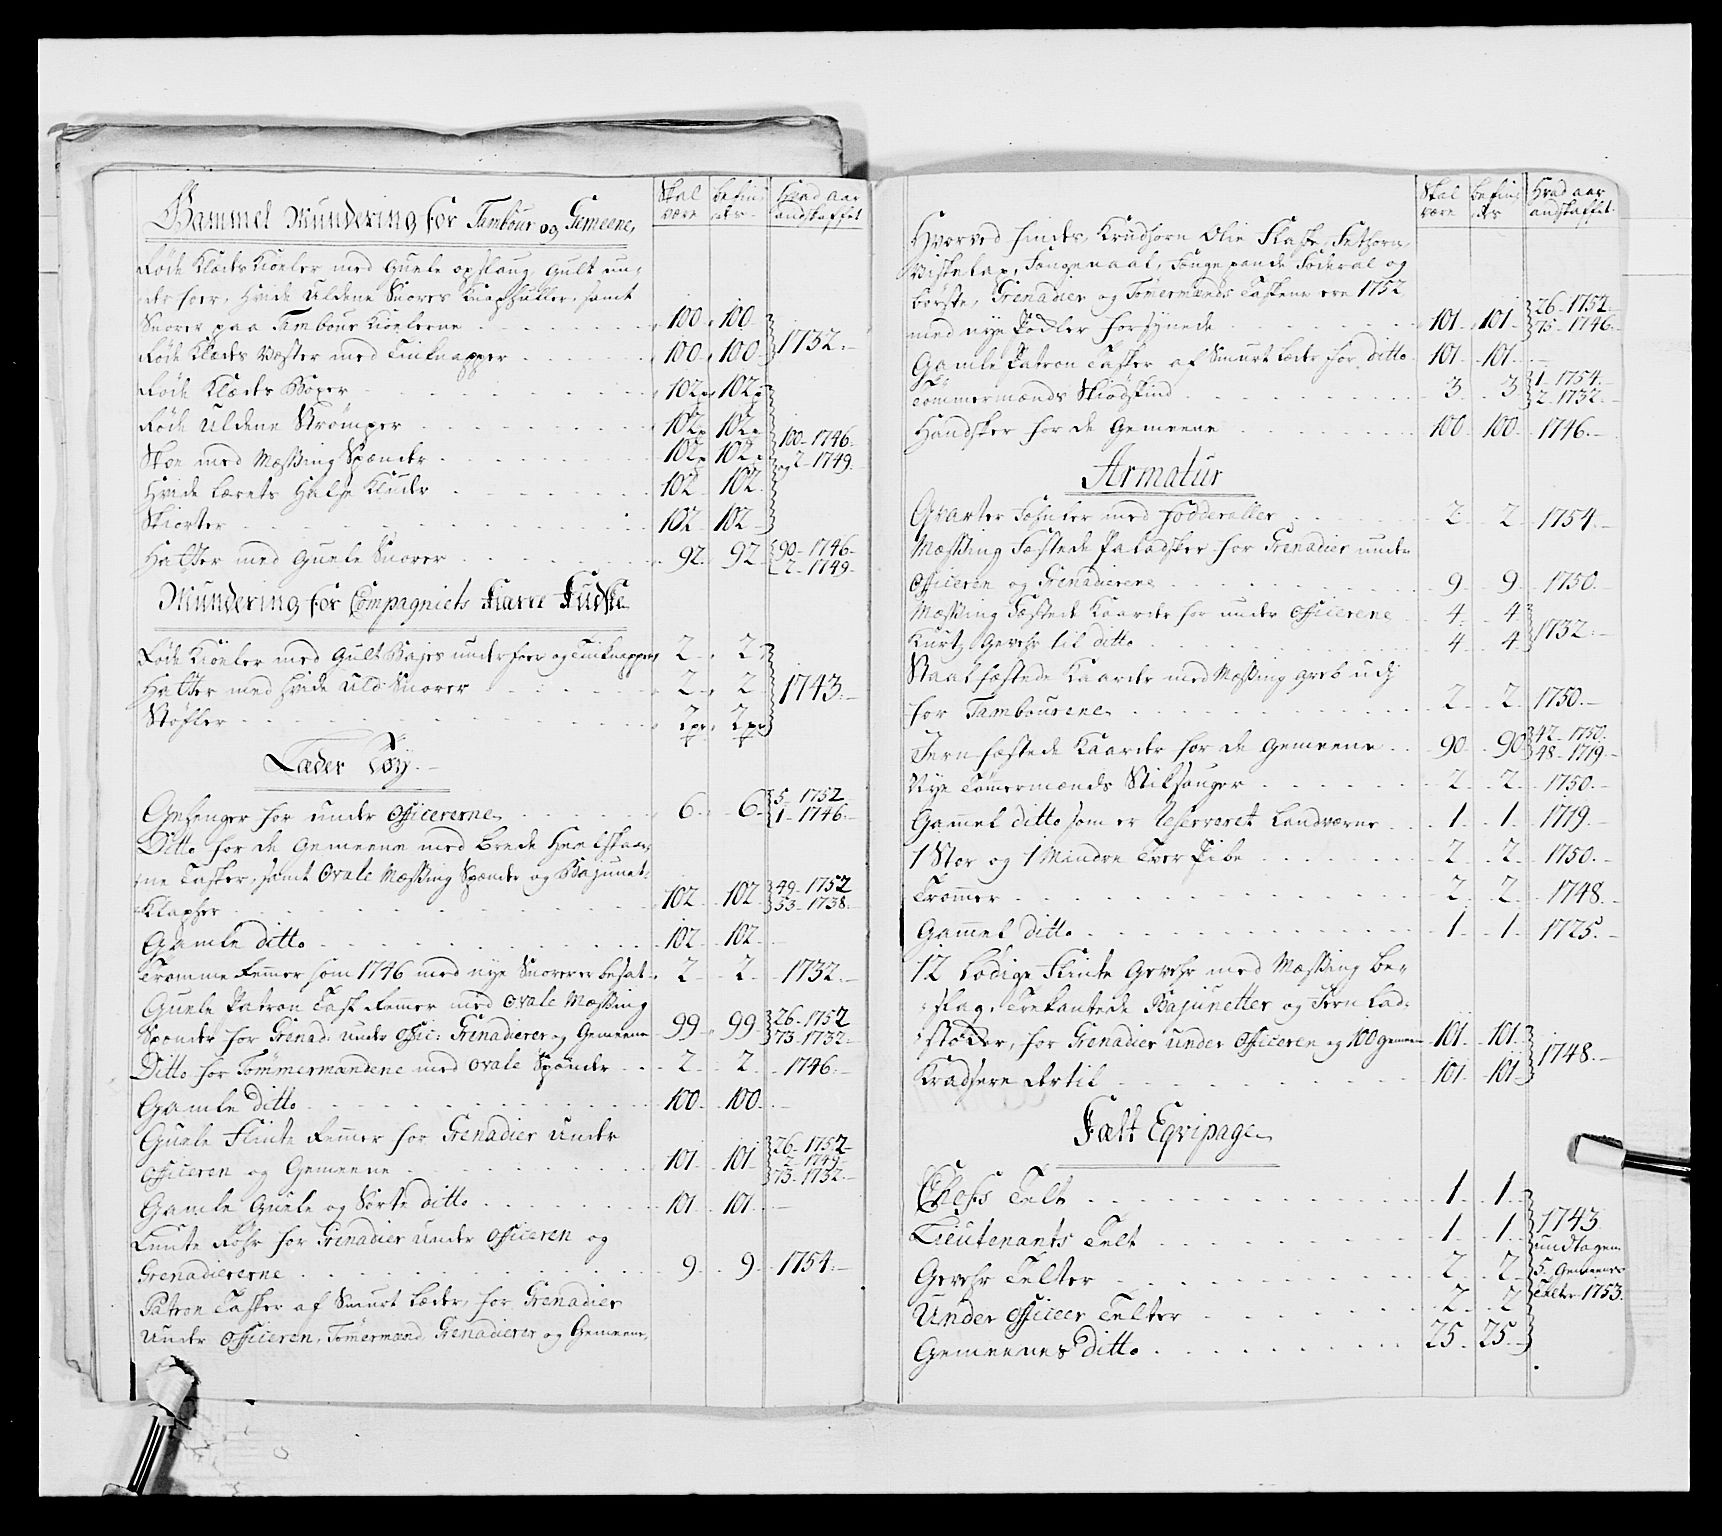 Skal være | befin- des | Hvad aar anskaffet
Gammel Mundering for Tambour og Gemeene,
Røde Klædes Kioeler med Guele opslaug, Gult un-
der foer, Hvide Uldene Snorer Knaphuller, samt
Snorer paa Tambour Kioelerne 100 100
Røde Klædes Væster med Tinknapper 100 100 1732
Røde Klædes Boxer 102 p 102 p
Røde Uldene Strømper 102 p 102 p
Skoe med Messing Spænder 102 p 102 p 100 - 1746 og 2 - 1749
Hvide Lærets Halse Kluder 102 102
Skiorter 102 102
Hatter med Guele Snorer 92 92 90 - 1746 2 - 1749
Mundering for Compagniets Karre Kudske
Røde Kioeler med Gult Bajes underfoer og Tinknapper 2 2
Hatter med hvide Uld Snorer 2 2 1743
Støfler 2 pr 2 pr
Læder Tøy
Gehenger for under Officererne 6 6 5 - 1752 1 - 1746
Ditto for de Gemeene med brede
ne Tasker, samt Ovale Messing Spænder og Bajunet-
Klapher 102 102 49 - 1752 53 - 1738
Gamle ditto 102 102
Tromme Remmer som 1746 med nye Snorer er besat 2 2 1732
Guele Patron Task Remmer med ovale Messing
Spænder for Grenad: under Offic: Grenadierer og Gemeene 99 99 26 - 1752 73 - 1732
Ditto for Tømmermændene med ovale Spænder 2 2 1746
Gamle ditto 100 100
Guele Flinte Remmer for Grenadier Under
Officeren og Gemeene 101 101 26 - 1752 2 - 1749 73 - 1732
Gamle Guele og Sorte ditto 101 101
Lunte Rohr for Grenadier Under Officeren og
Grenadiererne 9 9 1754
Patron Tasker af Smurt Læder, for Grenadier
Under Officeren, Tømermænd Grenadierer og Gemeene,
Skal være | befin- des | Hvad aar anskaffet
Hvorved findes, Krudhorn Olie Flaske, Fethorn,
Viskelap, Fængenaal, Fængepande Foderal og
børste, Grenadier og Tømermænds Taskene ere 1752
med nye forsynede 101 101 26 - 1752 75 - 1746
Gamle Patron Tasker af Smurt Læder for ditto 101 101
Tømmermænds Skiødskind 3 3 1 - 1754 2 - 1732
Handsker for de Gemeene 100 100 1746
Armatur
Qvarteer Fahner med Fodderaller 2 2 1754
Messing Fæstede Paladsker for Grenadier under
Officeren og Grenadierene 9 9 1750
Messing Fæstede Kaarder for under Officerene 4 4
Kurtz Gevehr til ditto 4 4 1732
Staal fæstede Kaarder med Messing greb udj
for Tambourene 2 2 1750
Jern fæstede Kaarder for de Gemeene 90 90 42 - 1750 48 - 1719
Nye Tømermænds 2 2 1750
Gammel ditto som er Reserveret Landværne 1 1 1719
1 Stor og 1 Mindre Tver Pibe 2 2 1750
Trommer 2 2 1748
Gammel ditto 1 1 1725
12 Lødige Flinte Gevehr med Messing be-
slag, Trekantede Bajunetter og Jern Lad-
støcker, for Grenadier under Officeren og 100 gemeene 101 101
Kradsere dertil 101 101 1748
Fælt Eqvipage
Chefs Telt 1 1
Lieutenants Telt 1 1 1743 undtagen
Gevehr Telter 2 2 5 Gemeenes
Under Officeer Telter 2 2 Telter 1753
Gemeenes ditto 25 25